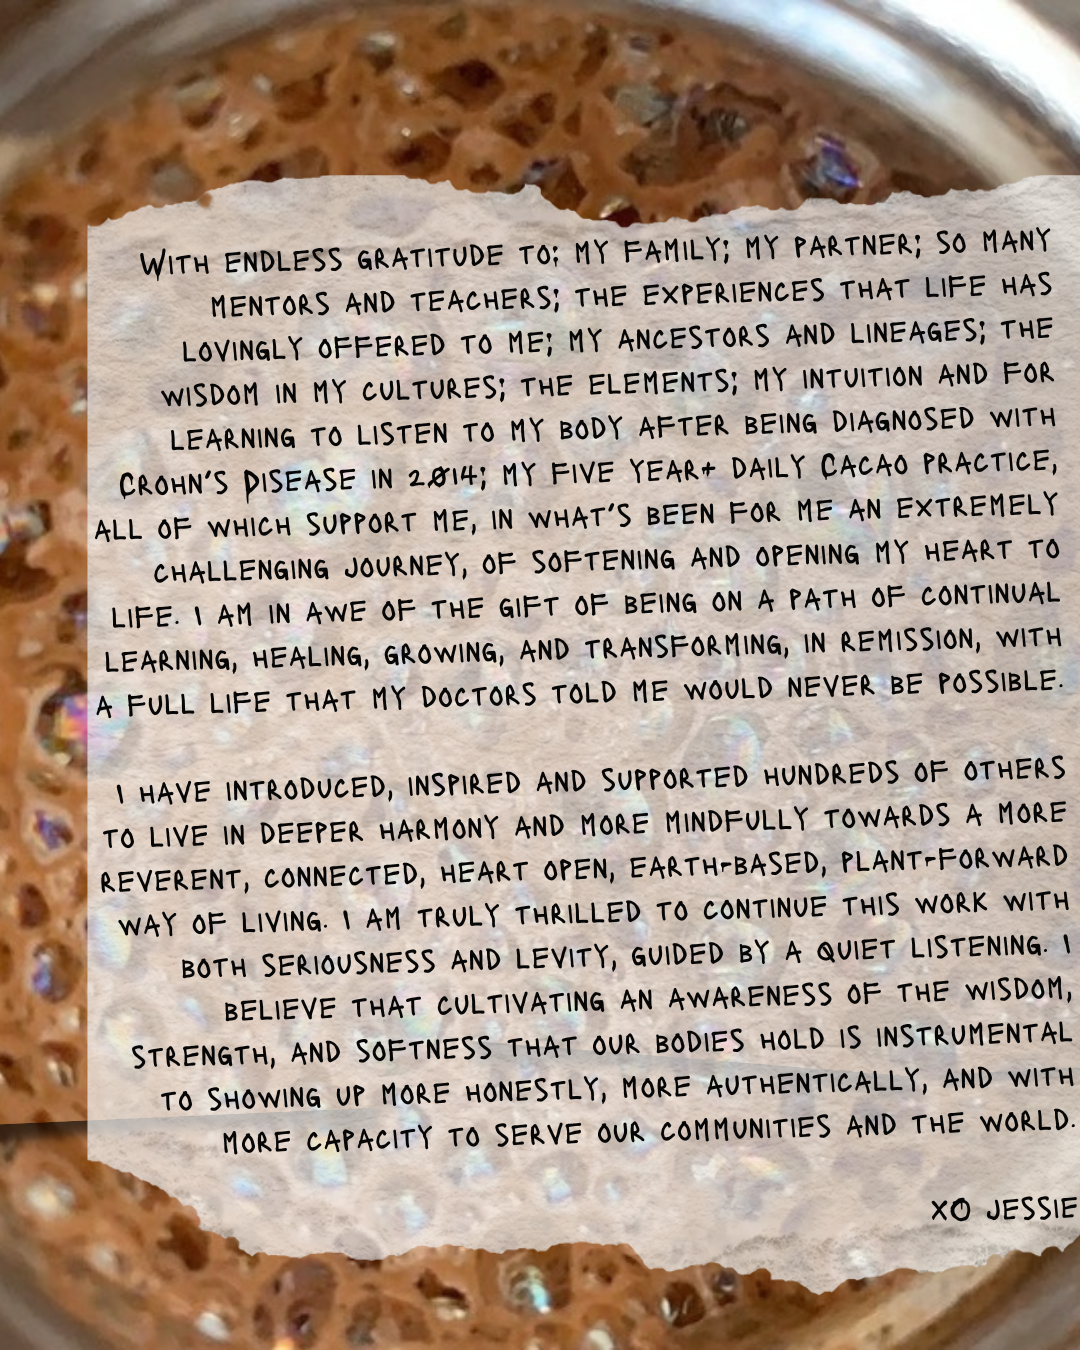 WITH ENDLESS GRATITUDE TO; MY FAMILY; MY PARTNER; SO MANY
MENTORS AND TEACHERS; THE EXPERIENCES THAT LIFE HAS
LOVINGLY OFFERED TO ME; MY ANCESTORS AND LINEAGES; THE
WISDOM IN MY CULTURES; THE ELEMENTS; MY INTUITION AND FOR
LEARNING TO LISTEN TO MY BODY AFTER BEING DIAGNOSED WITH
CROHN'S DISEASE IN 2014; MY FIVE YEAR+ DAILY CACAO PRACTICE,
ALL OF WHICH SUPPORT ME, IN WHAT'S BEEN FOR ME AN EXTREMELY
CHALLENGING JOURNEY, OF SOFTENING AND OPENING MY HEART TO
LIFE. I AM IN AWE OF THE GIFT OF BEING ON A PATH OF CONTINUAL
LEARNING, HEALING, GROWING, AND TRANSFORMING, IN REMISSION, WITH
A FULL LIFE THAT MY DOCTORS TOLD ME WOULD NEVER BE POSSIBLE.
I HAVE INTRODUCED, INSPIRED AND SUPPORTED HUNDREDS OF OTHERS
TO LIVE IN DEEPER HARMONY AND MORE MINDFULLY TOWARDS A MORE
REVERENT, CONNECTED, HEART OPEN, EARTH-BASED, PLANT-FORWARD
WAY OF LIVING. I AM TRULY THRILLED TO CONTINUE THIS WORK WITH
BOTH SERIOUSNESS AND LEVITY, GUIDED BY A QUIET LISTENING. I
BELIEVE THAT CULTIVATING AN AWARENESS OF THE WISDOM,
STRENGTH, AND SOFTNESS THAT OUR BODIES HOLD IS INSTRUMENTAL
TO SHOWING UP MORE HONESTLY, MORE AUTHENTICALLY, AND WITH
MORE CAPACITY TO SERVE OUR COMMUNITIES AND THE WORLD.
XO JESSIE